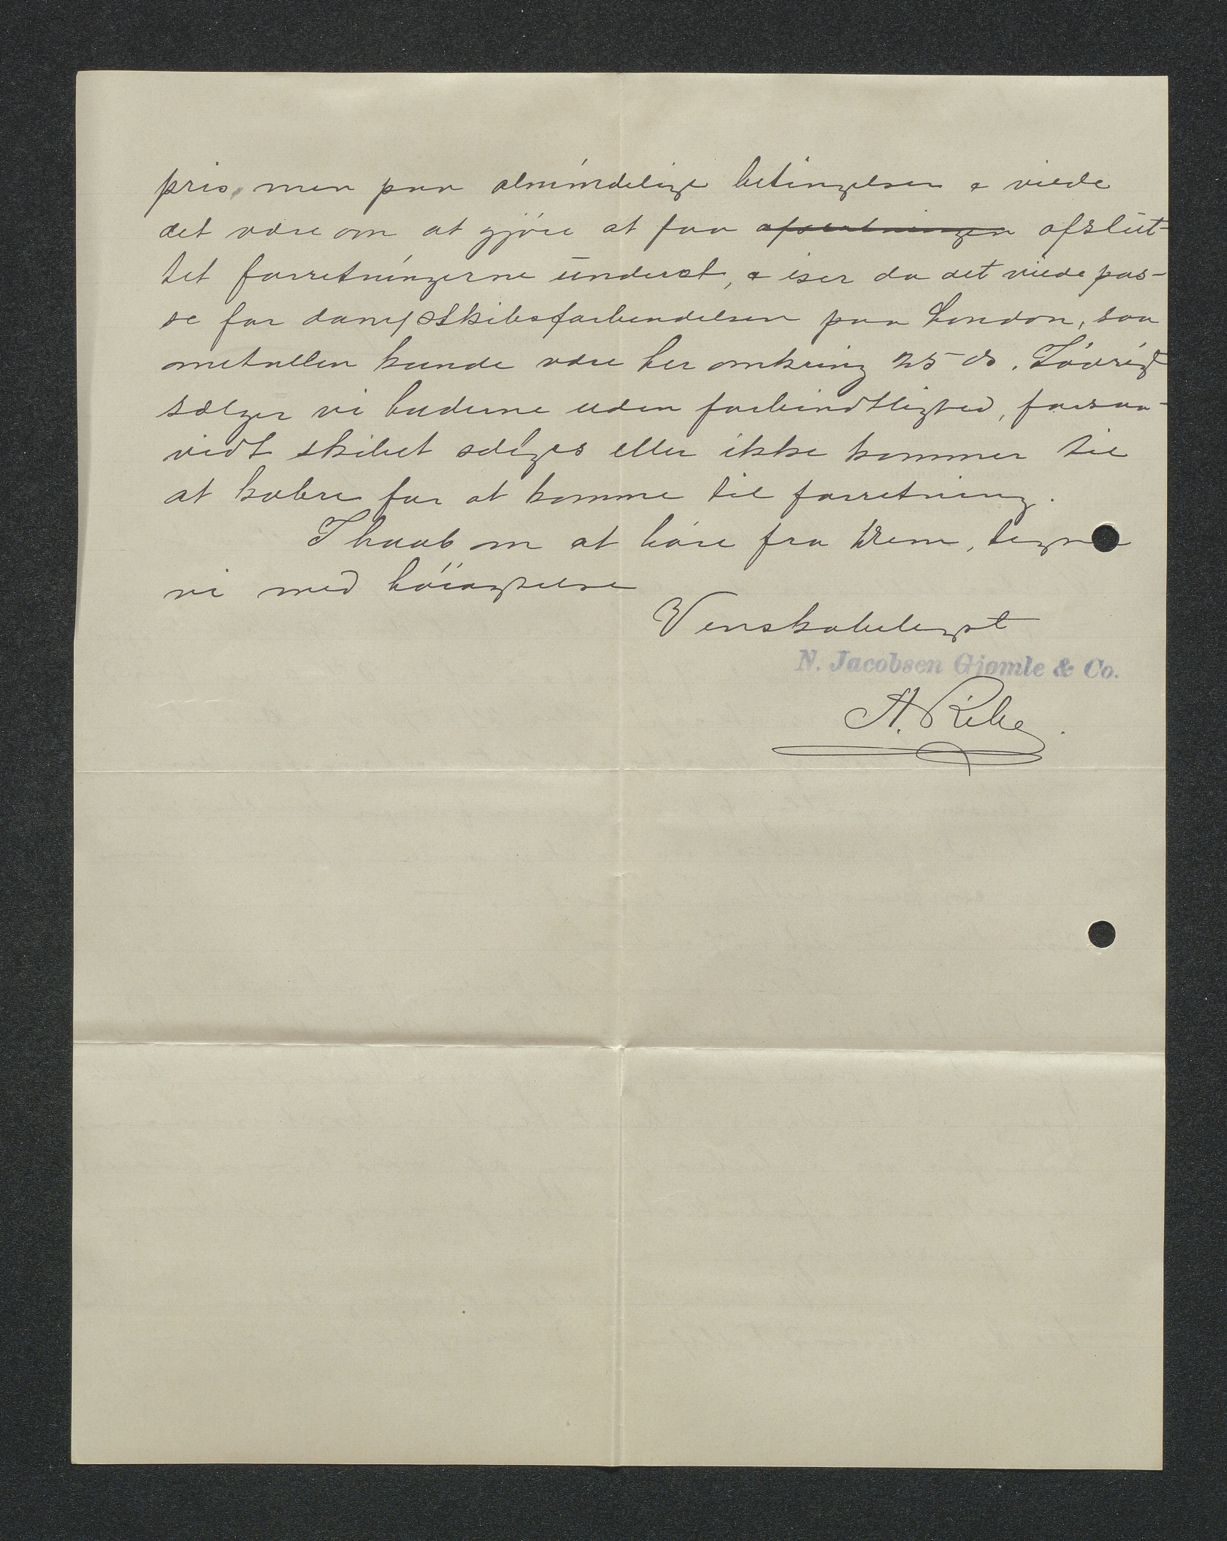 pris, men paa almindelige betingelser & vilde
det være om at gjöre at faa afslut-
tet forretningerne underet, & iser da det vilde pas-
se for dampskibsforbindelsen paa London, saa
metallen kunde være her omkring 25 ds. Iövrigt
sælger vi baderne uden forbindtlighed, forsaa-
vidt skibet sælges eller ikke kommer til
at for at komme til forretning.
I haab om at höre fra Dem, tegner
vi med höiagtelse
Venskabeligst
N. Jacobsen Gjomle & Co.
A. Ribe